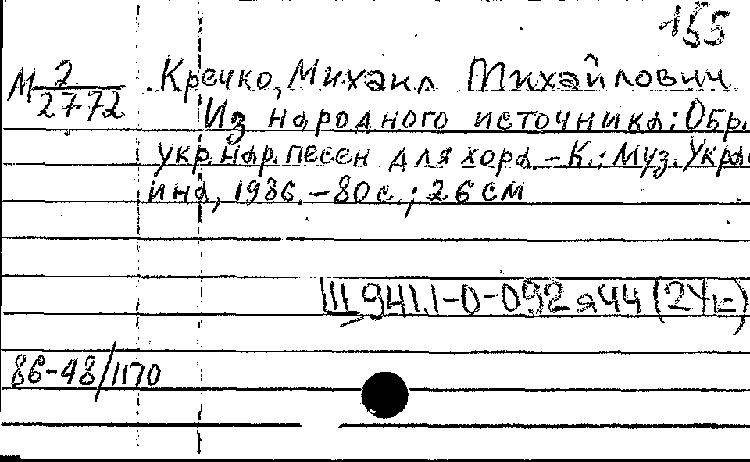 155
М 2/2772
Кречко, Михаил Михайлович
Из народного источника: Обр.
укр. нар. песен для хора. – К.: Муз. Укра-
ина, 1986. – 80 с.; 26 см
Щ 941.1-0-092 я44 (2Ук)
86-48/1170